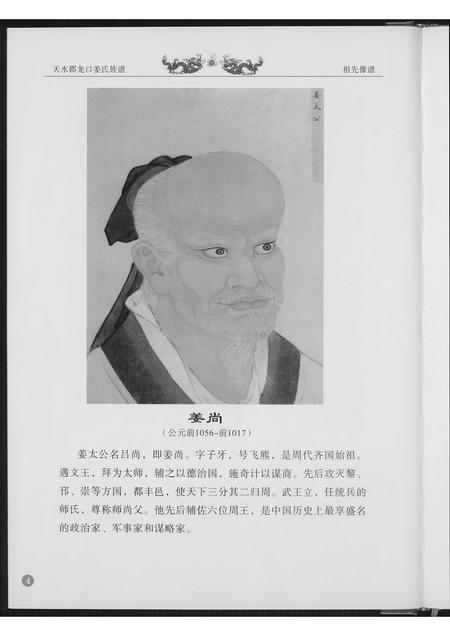 天水郡龙口姜氏族谱
祖先像谱
姜太公
姜尚
（公元前1056-前1017）
姜太公名吕尚，即姜尚。字子牙，号飞熊，是周代齐国始祖。
遇文王，拜为太师，辅之以德治国，施奇计以谋商。先后攻灭黎、
邗、崇等方国，都丰邑，使天下三分其二归周。武王立，任统兵的
师氏，尊称师尚父。他先后辅佐六位周王，是中国历史上最享盛名
的政治家、军事家和谋略家。
4